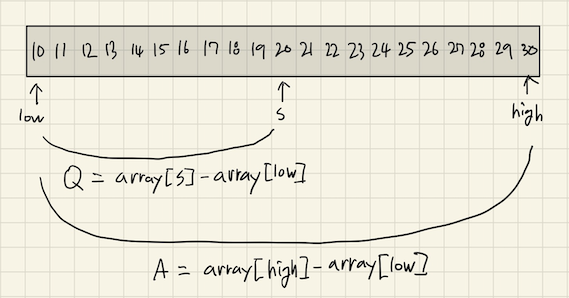 10 11 12 13 14 15 16 17 18 19 20 21 22 23 24 25 26 27 28 29 30
low s high
Q = array[s] - array[low]
A = array[high] - array[low]